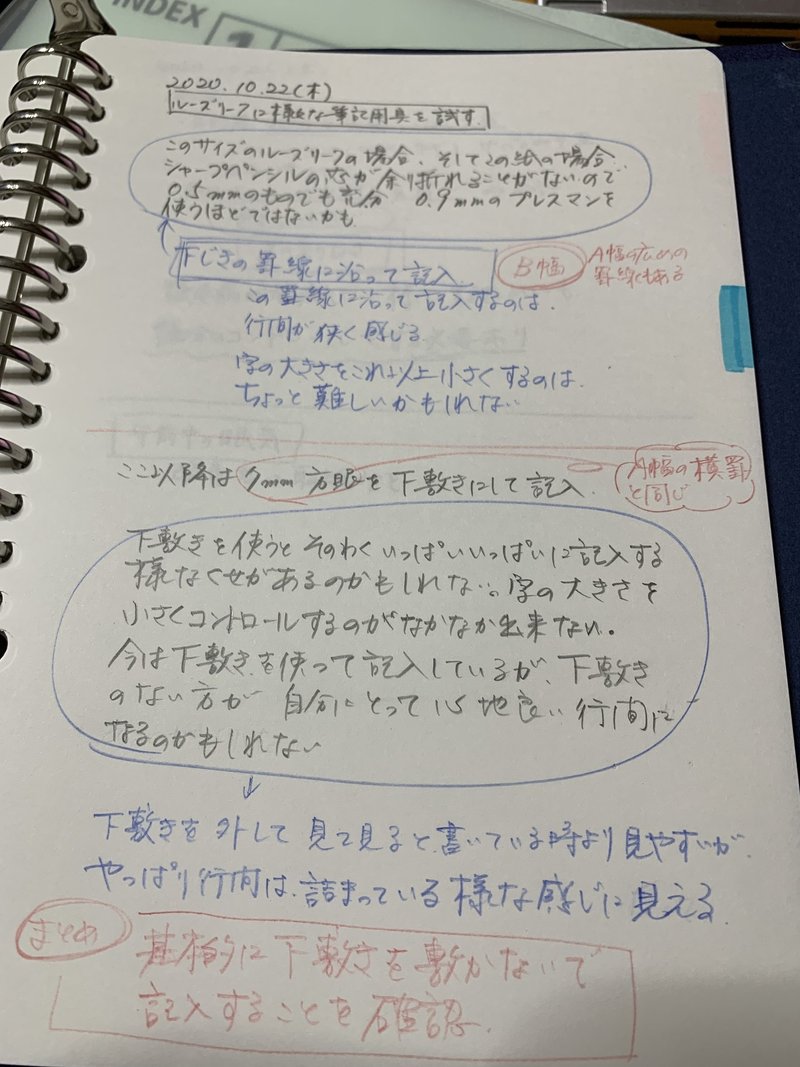 INDEX
1
2020.10.22(木)
ルーズリーフに様々な筆記用具を試す
このサイズのルーズリーフの場合、そしてこの紙の場合、
シャープペンシルの芯が余り折れることがないので
0.5mmのものでも充分 0.9mmのプレスマンを
使うほどではないかも
下じきの罫線に沿って記入
B幅
A幅の広めの
罫線もある
この罫線に沿って記入するのは、
行間が狭く感じる
字の大きさをこれ以上小さくするのは、
ちょっと難しいかもしれない
ここ以降は7mm方眼を下敷きにして記入
A幅の横罫
と同じ
下敷きを使うとそのわくいっぱいいっぱいに記入する
様なくせがあるのかもしれない。字の大きさを
小さくコントロールするのがなかなか出来ない。
今は下敷きを使って記入しているが、下敷き
のない方が 自分にとって心地良い行間に
なるのかもしれない
↓
下敷きを外して見て見ると書いている時より見やすいが
やっぱり行間は、詰まっている様な感じに見える
まとめ
基本的に下敷きを敷かないで
記入することを確認